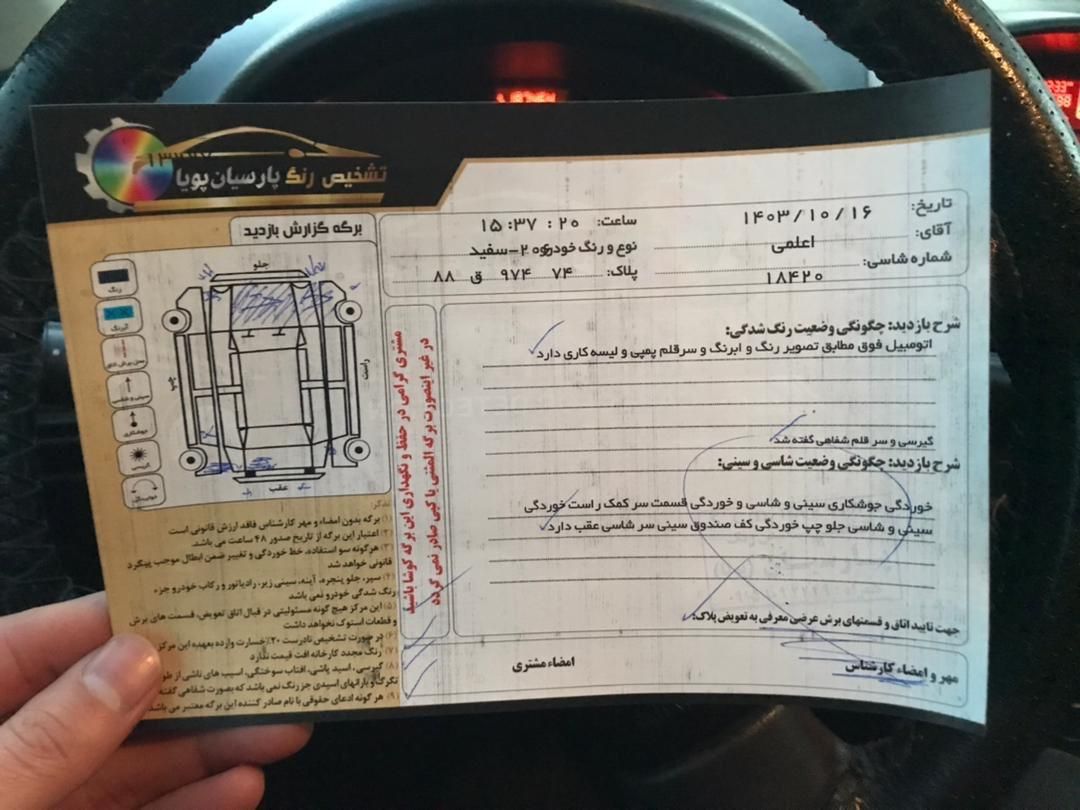 تشخیص رنگ پارسیان پویا
برگه گزارش بازدید
تاریخ: ۱۴۰۳/۱۰/۱۶
ساعت: ۱۵:۳۷:۲۰
آقای: اعلمی
نوع و رنگ خودرو: ۲۰۶-سفید
شماره شاسی: ۱۸۴۲۰
پلاک: ۷۴ ۹۷۴ ق ۸۸
جلو
راست
چپ
عقب
رنگ
آبرنگ
سینی و شاسی
جوشکاری
گریس
مشتری گرامی در حفظ و نگهداری این برگه کوشا باشید
در غیر اینصورت برگه المثنی یا کپی صادر نمی گردد
شرح بازدید: چگونگی وضعیت رنگ شدگی:
اتومبیل فوق مطابق تصویر رنگ و ابرنگ و سرقلم پمپی و لیسه کاری دارد
گیرسی و سر قلم شفاهی گفته شد
شرح بازدید: چگونگی وضعیت شاسی و سینی:
خوردگی جوشکاری سینی و شاسی و خوردگی قسمت سر کمک راست خوردگی
سینی و شاسی جلو چپ خوردگی کف صندوق سینی سر شاسی عقب دارد
جهت تایید اتاق و قسمتهای برش عرضی معرفی به تعویض پلاک:
مهر و امضاء کارشناس
امضاء مشتری
تذکر:
۱) برگه بدون امضاء و مهر کارشناس فاقد ارزش قانونی است
۲) اعتبار این برگه از تاریخ صدور ۴۸ ساعت می باشد.
۳) هرگونه سو استفاده، خط خوردگی و تغییر ضمن ابطال موجب پیگرد
قانونی خواهد شد
۴) سپر، جلو پنجره، آینه، سینی زیر، رادیاتور و رکاب خودرو جزء
رنگ شدگی خودرو نمی باشد
۵) این مرکز هیچ گونه مسئولیتی در قبال اتاق تعویض، قسمت های برش
و قطعات استوک نخواهد داشت
۶) در صورت تشخیص نادرست ۲۰٪ خسارت وارده بعهده این مرکز
۷) رنگ مجدد کارخانه افت قیمت ندارد
۸) گیرسی، اسید پاشی، آفتاب سوختگی، آسیب های ناشی از
تگرگ و بارانهای اسیدی جز رنگ نمی باشد که بصورت شفاهی گفته
۹) هر گونه ادعای حقوقی با نام صادر کننده این برگه معتبر می باشد